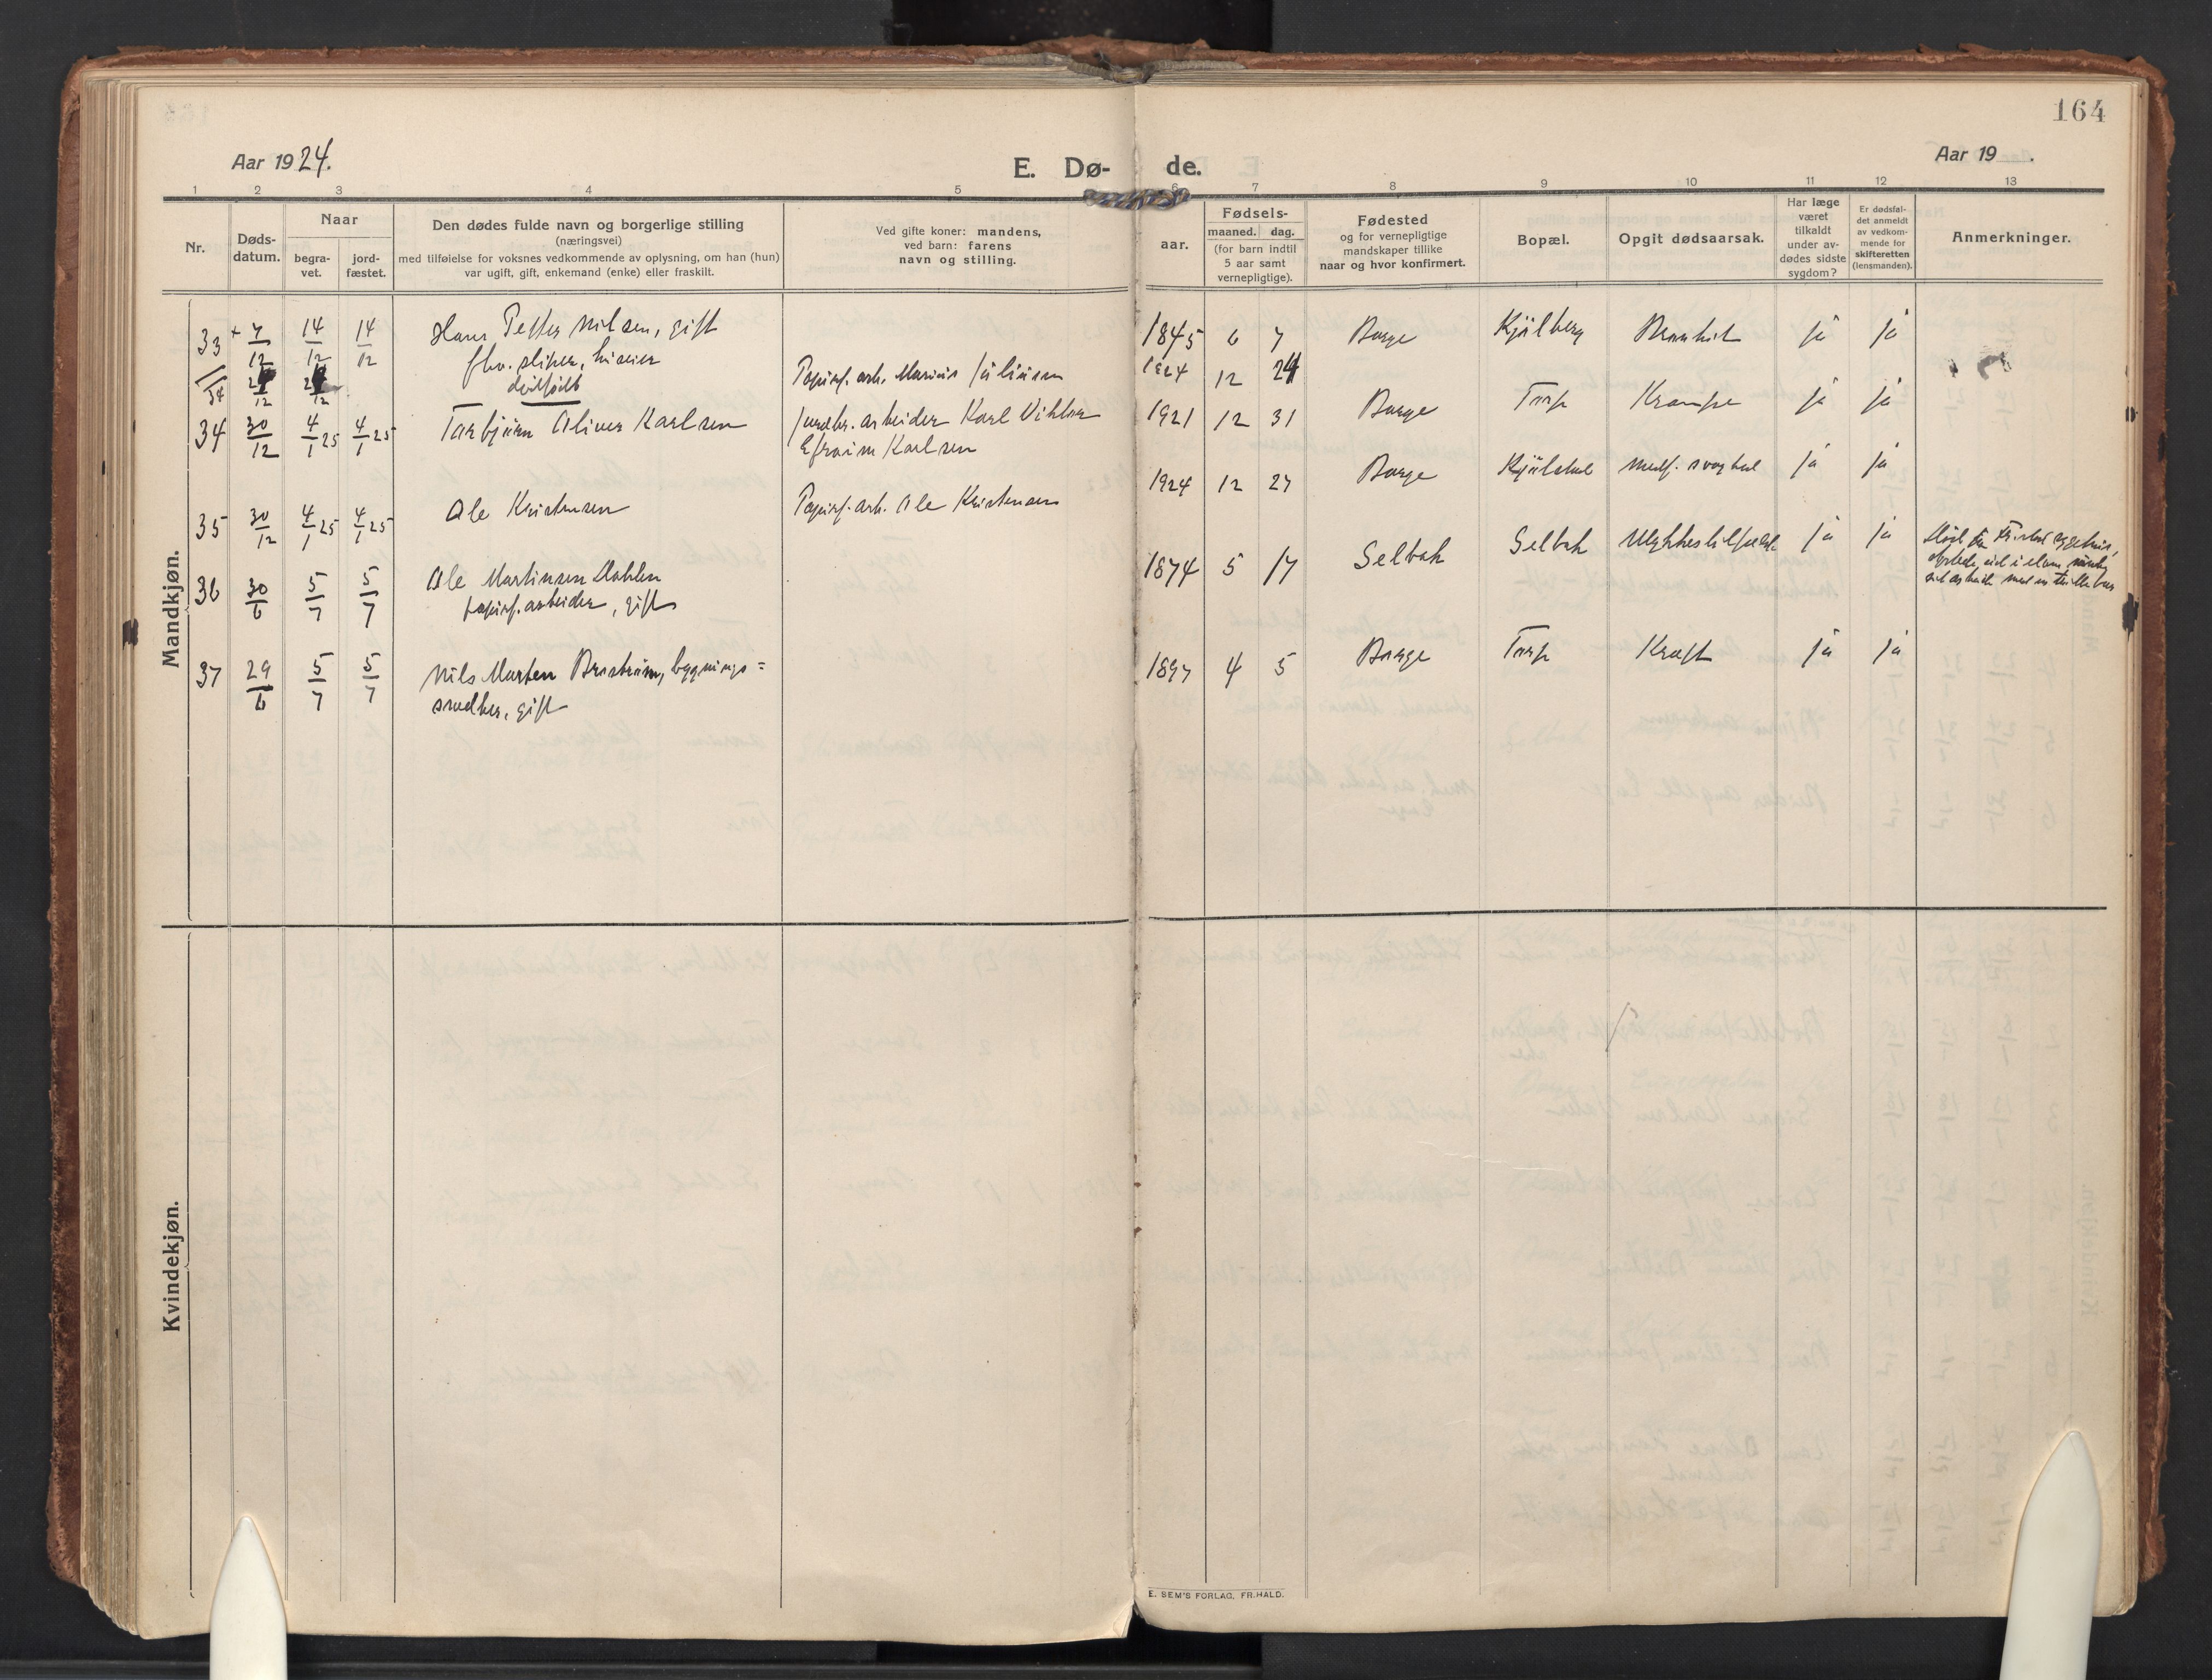 164
Aar 1924.
E. Dø-
de.
Aar 19 .
1 2 3 4 5 6 7 8 9 10 11 12 13
Nr.
Døds-
datum.
Naar
begra-
vet.
jord-
fæstet.
Den dødes fulde navn og borgerlige stilling
(næringsvei)
med tilføielse for voksnes vedkommende av oplysning, om han (hun)
var ugift, gift, enkemand (enke) eller fraskilt.
Ved gifte koner: mandens,
ved barn: farens
navn og stilling.
aar.
Fødsels-
maaned. dag.
(for barn indtil
5 aar samt
vernepligtige).
Fødested
og for vernepligtige
mandskaper tillike
naar og hvor konfirmert.
Bopæl.
Opgit dødsaarsak.
Har læge
været
tilkaldt
under av-
dødes sidste
sygdom?
Er dødsfal-
det anmeldt
av vedkom-
mende for
skifteretten
(lensmanden).
Anmerkninger.
Mandkjøn.
33 + 7/12 14/12 14/12 Hans Petter Nilsen, gift 1845 6 7 Borge Kjølberg ja ja
fhv. sliper, huseier
dødfødt Papirf. arb. Marius Juliussen 1924 12 24
34 30/12 4/1 25 4/1 25 Torbjørn Oliver Karlsen arbeider Karl Viktor 1921 12 31 Borge Torp Krampe ja ja
Efraim Karlsen
35 30/12 4/1 25 4/1 25 Ole Kristensen Papirf. arb. Ole Kristensen 1924 12 27 Borge medf. svaghet ja ja
36 30/6 5/7 5/7 Ole Martinsen Dahlen 1874 5 17 Selbak Selbak Ulykkestilfælde ja ja
papirf. arbeider, gift
37 29/6 5/7 5/7 Nils Morten Brostrøm, bygnings= 1897 4 5 Borge Torp Kræft ja ja
snedker, gift
Kvindekjøn.
E. SEM'S FORLAG, FR.HALD.